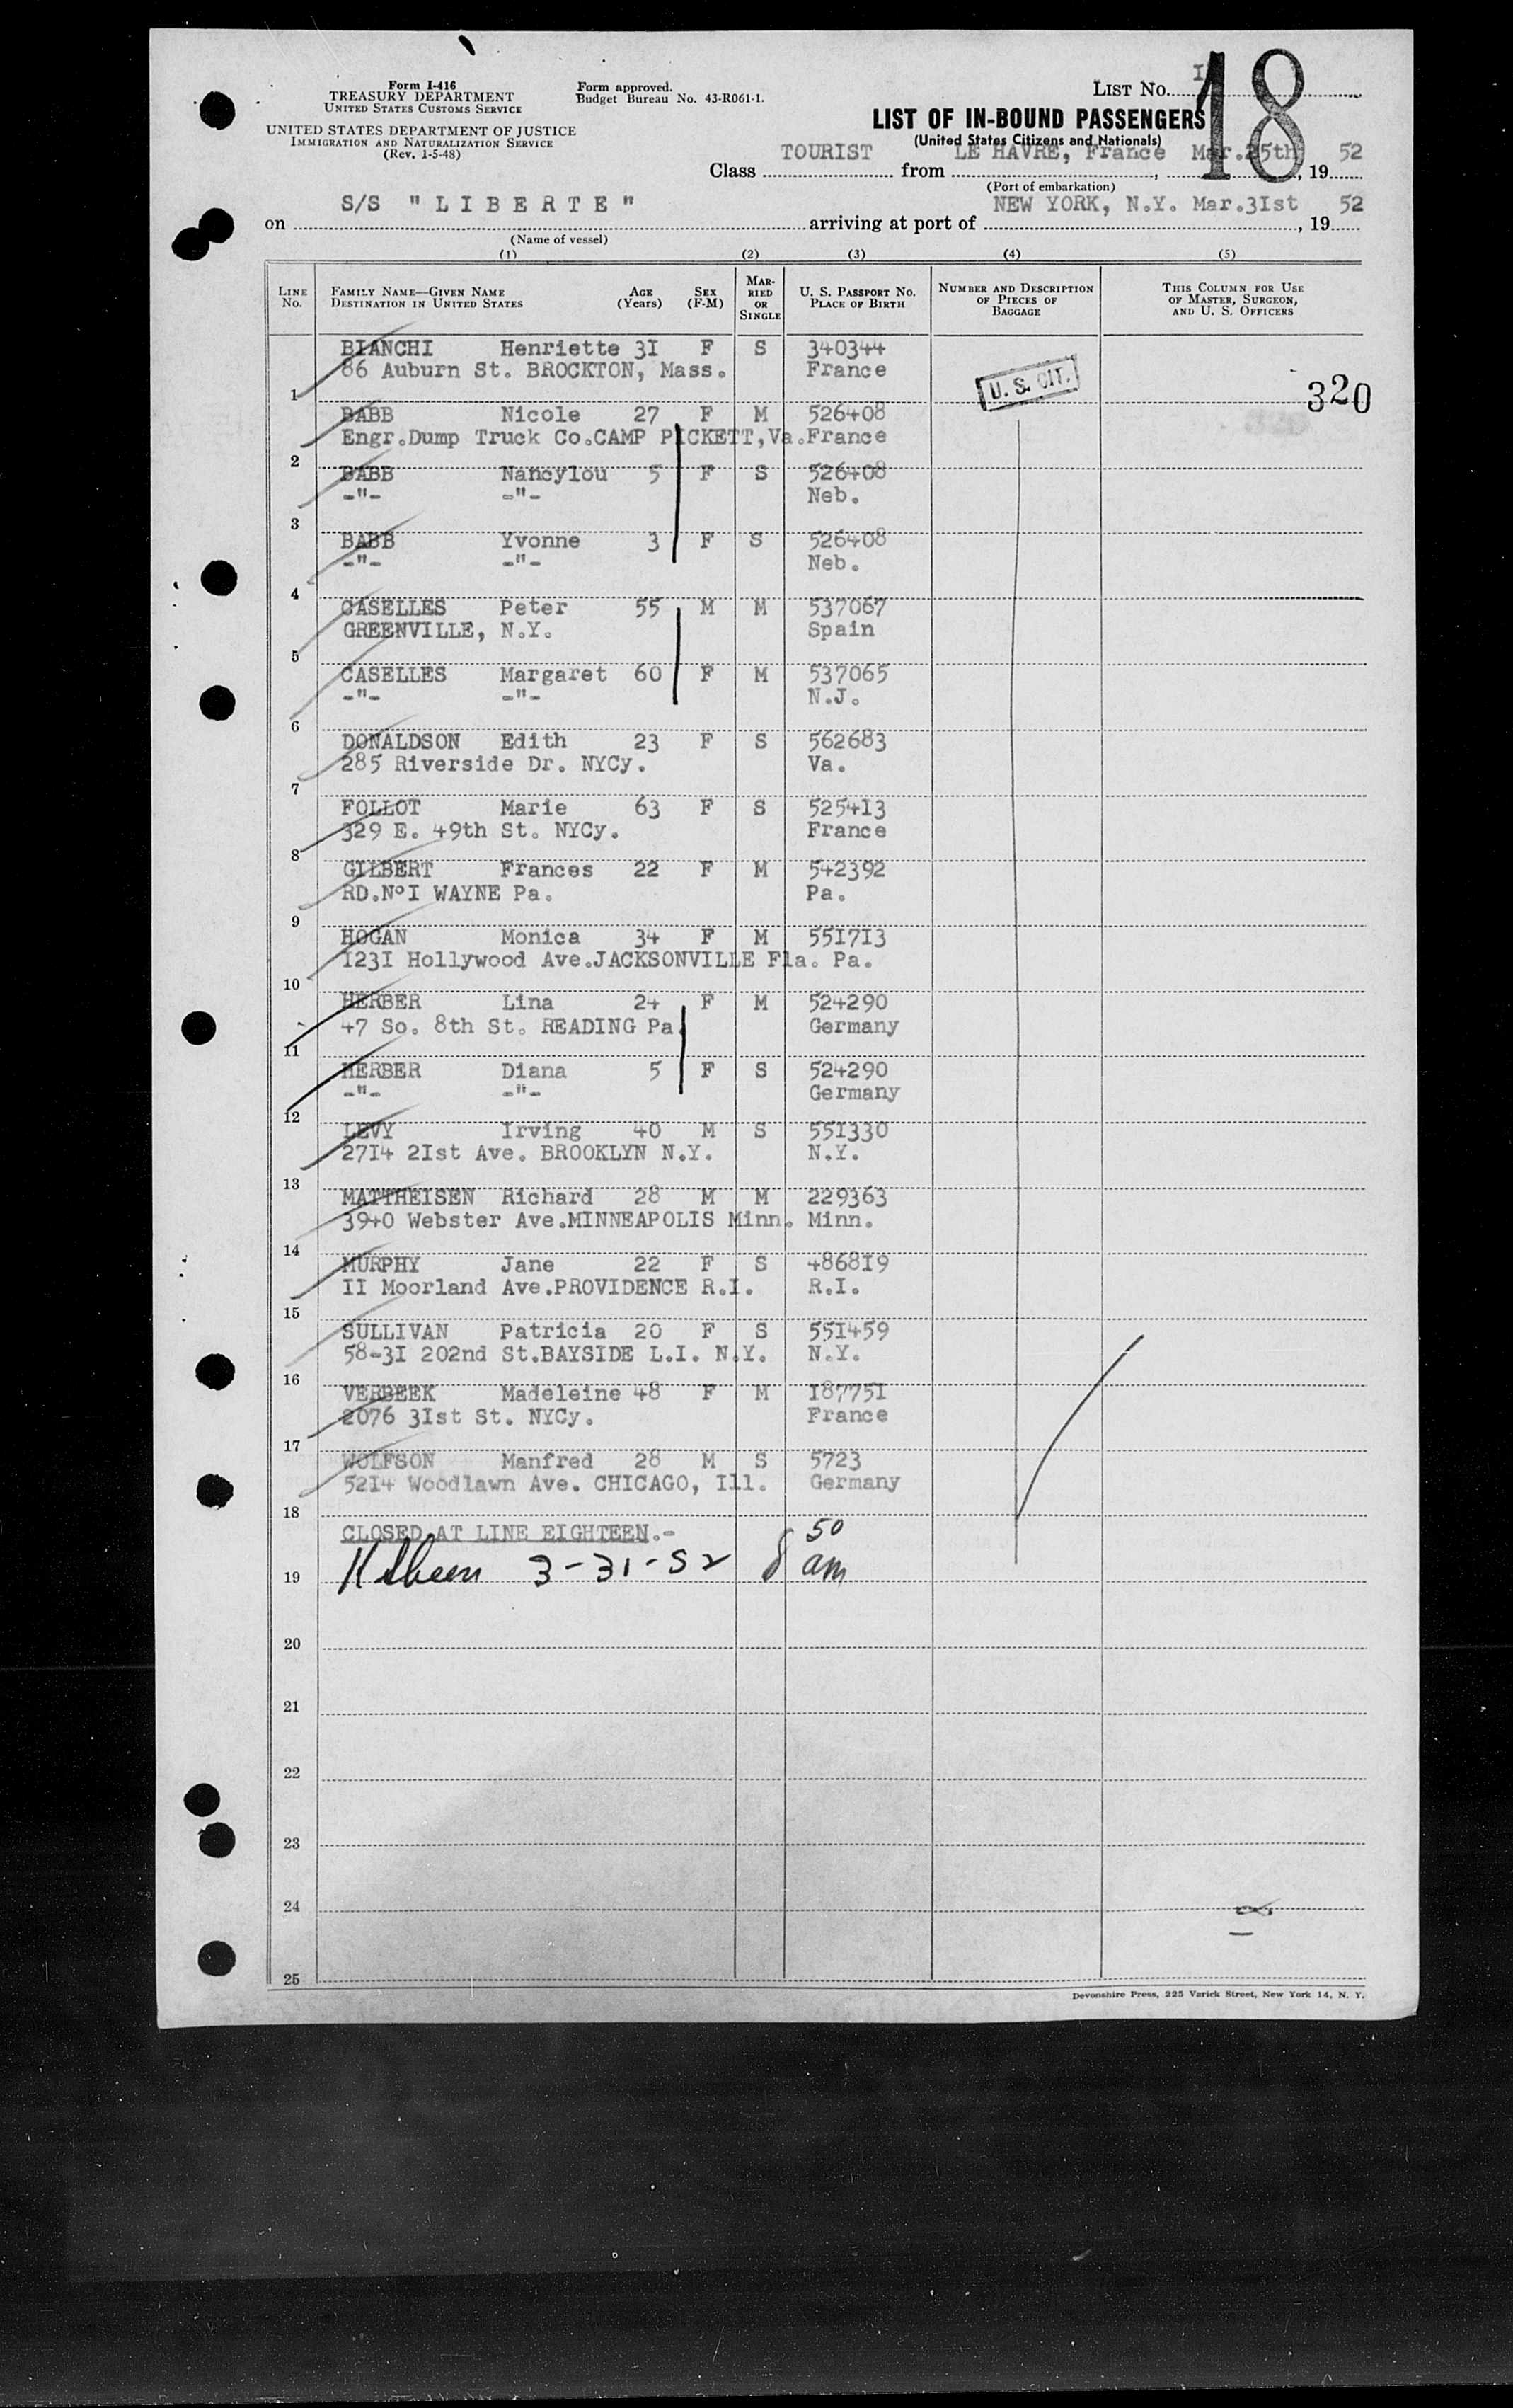 Form I-416
TREASURY DEPARTMENT
UNITED STATES CUSTOMS SERVICE
UNITED STATES DEPARTMENT OF JUSTICE
IMMIGRATION AND NATURALIZATION SERVICE
(Rev. 1-5-48)
Form approved.
Budget Bureau No. 43-R061-1.
LIST NO. I
18
LIST OF IN-BOUND PASSENGERS
(United States Citizens and Nationals)
Class TOURIST from LE HAVRE, France, Mar.25th, 19 52
(Port of embarkation)
on S/S "LIBERTE" arriving at port of NEW YORK, N.Y. Mar.3Ist, 19 52
(Name of vessel)
(1) (2) (3) (4) (5)
LINE NO. FAMILY NAME—GIVEN NAME DESTINATION IN UNITED STATES AGE (Years) SEX (F-M) MARRIED OR SINGLE U. S. PASSPORT NO. PLACE OF BIRTH NUMBER AND DESCRIPTION OF PIECES OF BAGGAGE THIS COLUMN FOR USE OF MASTER, SURGEON, AND U. S. OFFICERS
BIANCHI Henriette 3I F S 340344
1 86 Auburn St. BROCKTON, Mass. France U. S. CIT. 320
BABB Nicole 27 F M 526408
2 Engr.Dump Truck Co.CAMP PICKETT,Va.France
BABB Nancylou 5 F S 526408
3 -"- -"- Neb.
BABB Yvonne 3 F S 526408
4 -"- -"- Neb.
CASELLES Peter 55 M M 537067
5 GREENVILLE, N.Y. Spain
CASELLES Margaret 60 F M 537065
6 -"- -"- N.J.
DONALDSON Edith 23 F S 562683
7 285 Riverside Dr. NYCy. Va.
FOLLOT Marie 63 F S 5254I3
8 329 E. 49th St. NYCy. France
GILBERT Frances 22 F M 542392
9 RD.N°I WAYNE Pa. Pa.
HOGAN Monica 34 F M 55I7I3
10 I23I Hollywood Ave.JACKSONVILLE Fla. Pa.
HERBER Lina 24 F M 524290
11 47 So. 8th St. READING Pa. Germany
HERBER Diana 5 F S 524290
12 -"- -"- Germany
LEVY Irving 40 M S 55I330
13 27I4 2Ist Ave. BROOKLYN N.Y. N.Y.
MATTHEISEN Richard 28 M M 229363
14 3940 Webster Ave.MINNEAPOLIS Minn. Minn.
MURPHY Jane 22 F S 4868I9
15 II Moorland Ave.PROVIDENCE R.I. R.I.
SULLIVAN Patricia 20 F S 55I459
16 58-3I 202nd St.BAYSIDE L.I. N.Y. N.Y.
VERBEEK Madeleine 48 F M I8775I
17 2076 3Ist St. NYCy. France
WOLFSON Manfred 28 M S 5723
18 52I4 Woodlawn Ave. CHICAGO, Ill. Germany
CLOSED AT LINE EIGHTEEN.-
19 3-31-52 8 50 am
20
21
22
23
24
25
Devonshire Press, 225 Varick Street, New York 14, N. Y.